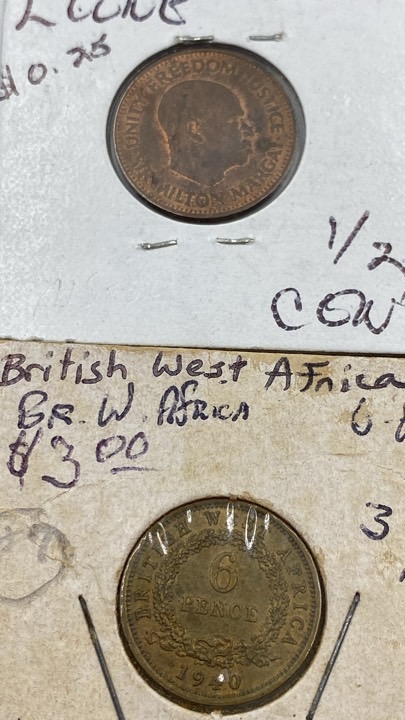 LEONE
$0.25
UNITY FREEDOM JUSTICE
MILTON MARGAI
1/2
CEN
British West Africa
BR. W. AFRICA
6-
$3.00
3
BRITISH WEST AFRICA
6
PENCE
1940